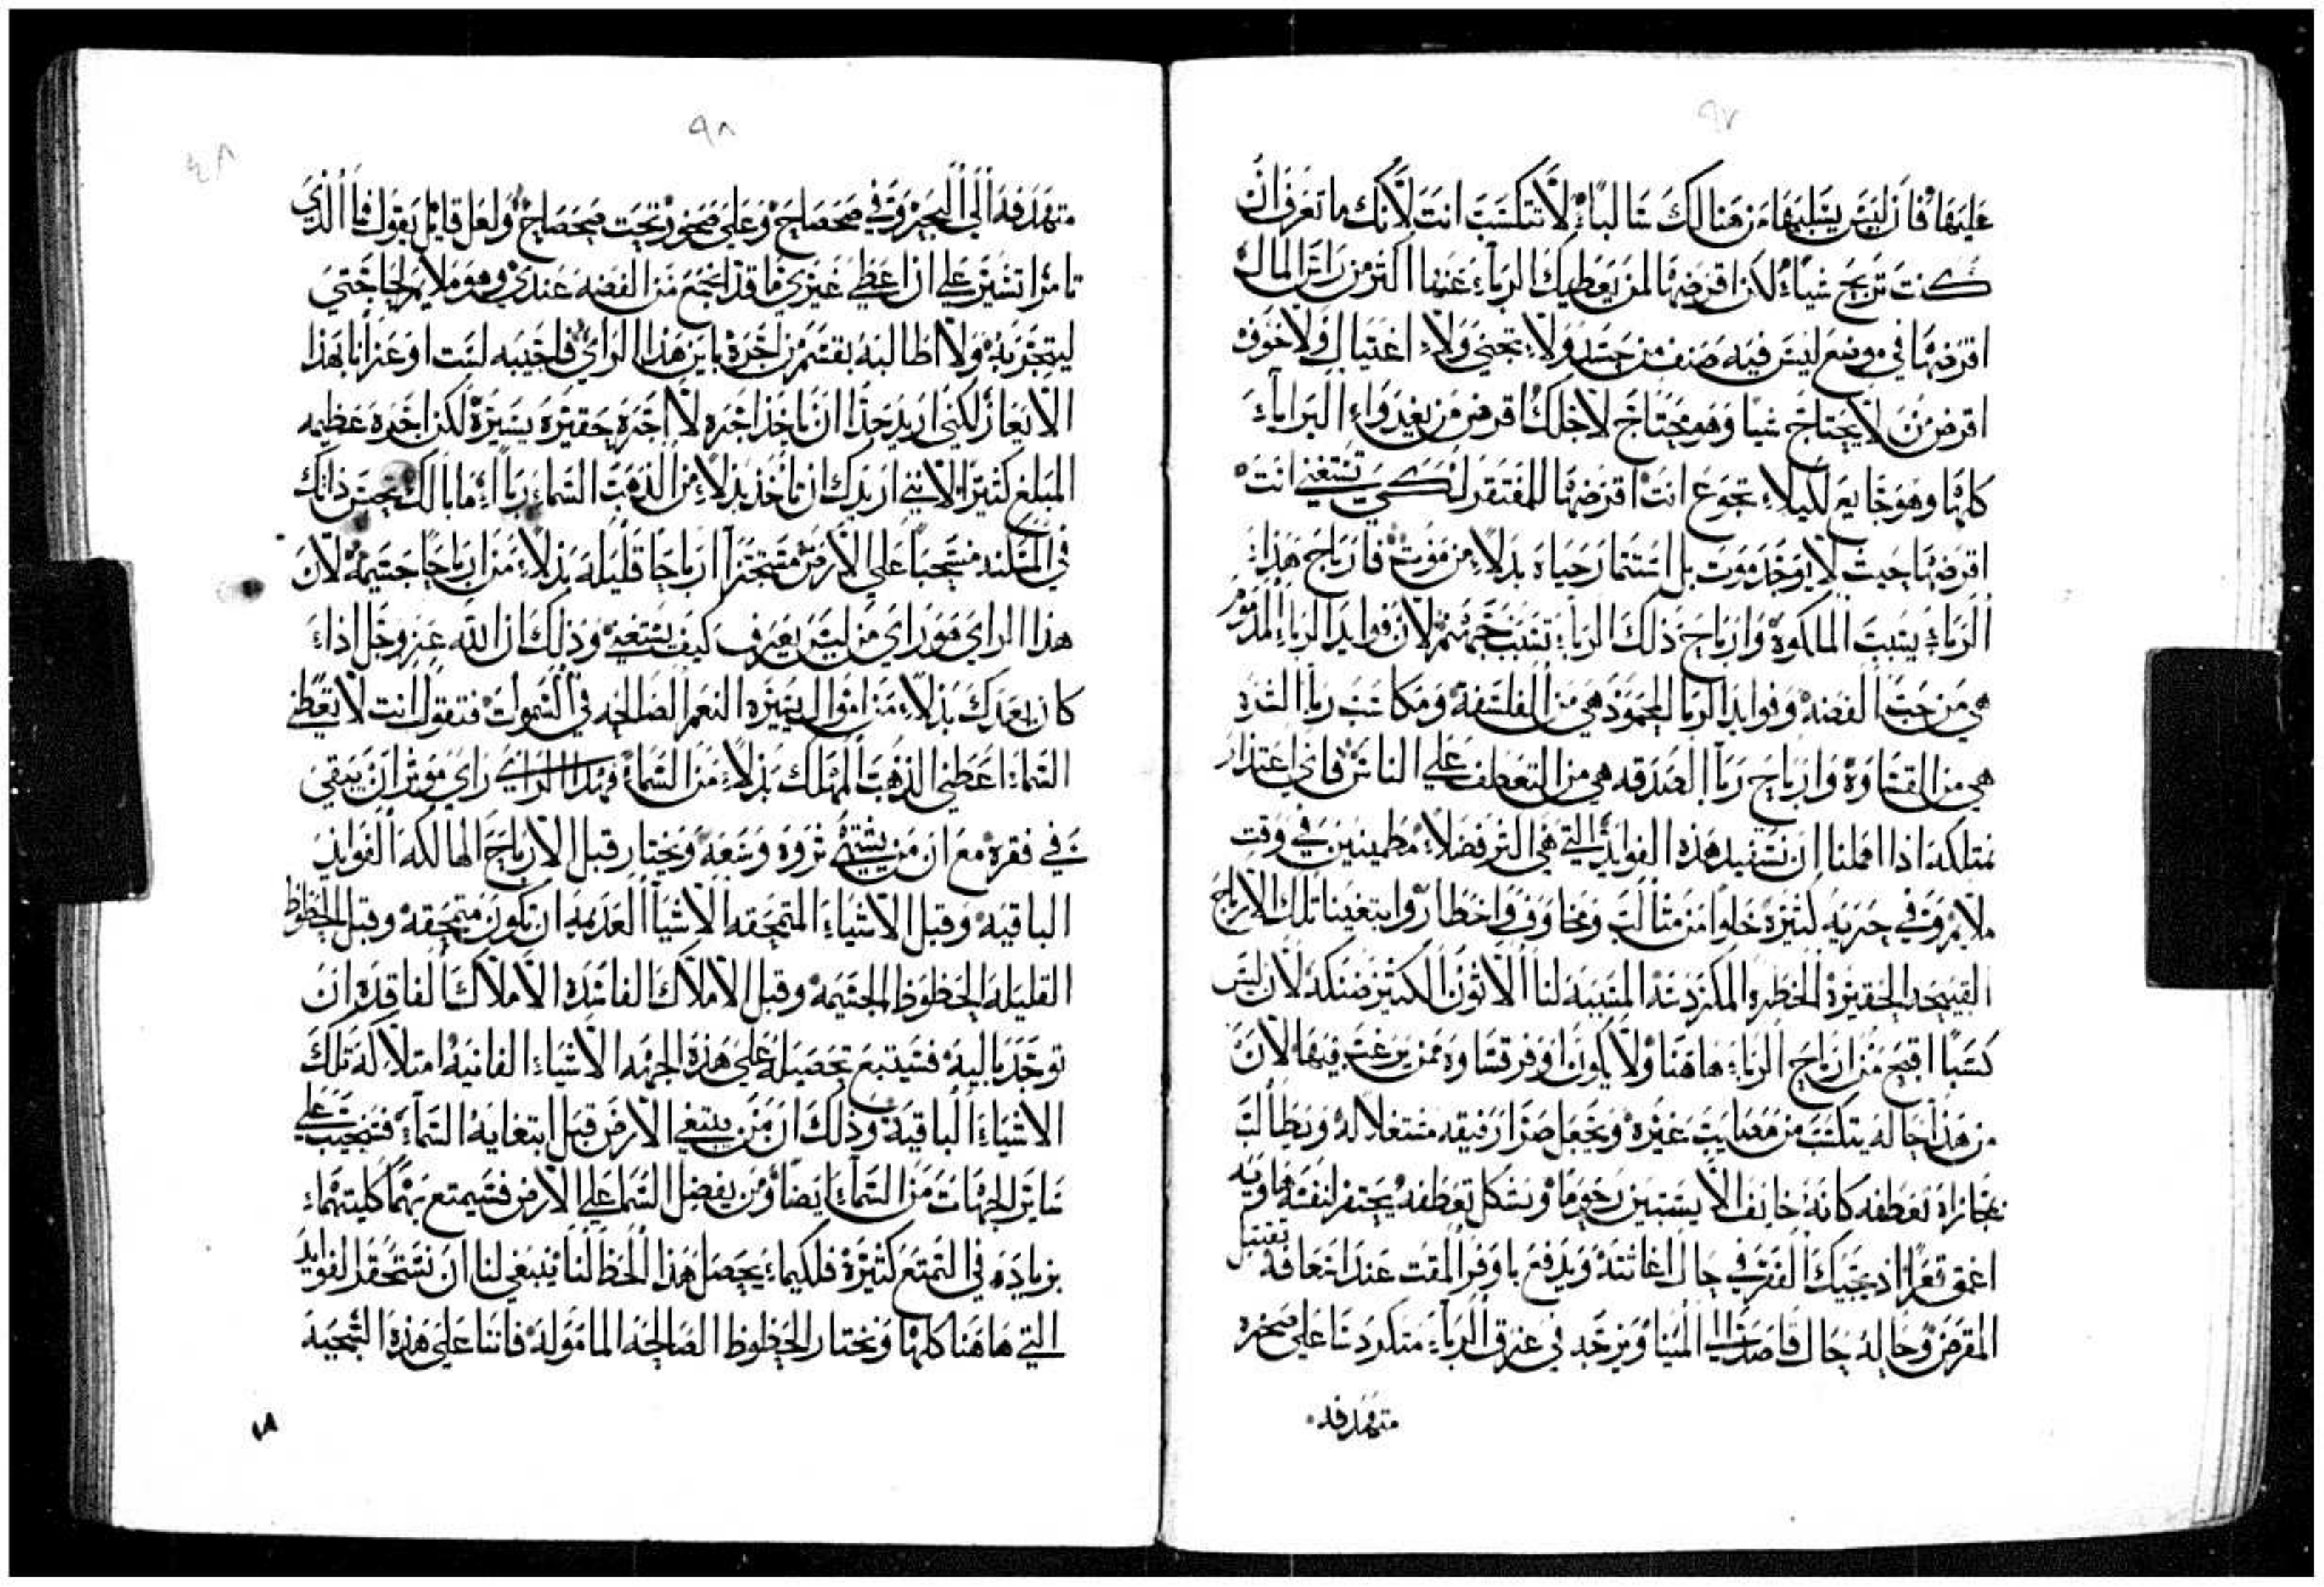 ٩٧
عليها فان ليس يسلبها من هنالك سالباً لا تتكسب انت لانك ما تعرف ان
كنت تربح شياً لكن اقرضها لمن يعطيك الرباء عنها اكثر من راس المال
اقرضها في موضع ليس فيه صنف من حسد ولا تجني ولا اغتيال ولا خوف
اقرض من لا يحتاج شيا وهو محتاج لاجلك اقرض من يغيد واء البراياء
كلها وهو جايع لكيلا تجوع انت اقرضها للمفتقر لكي تستغني انت
اقرضها حيث لا يوجد موت بل استثمار حياه بدلا من موت فارباح هذا
الرباء يسبب الملكوة وارباح ذلك الرباء تسبب جهنم لان فوايد الرباء المذموم
هي من حب الفضه وفوايد الربا المحمود هي من الفلسفة ومكاسب ربا الشره
هي من القساوة وارباح ربا الصدقه هي من التعطف علي الناس فاي اعتذار
نمتلكه اذا اهملنا ان نستفيد هذه الفوايد التي هي اكثر فضلا مطمينين في وقت
ملايم وفي حريه كثيرة خلوا من مثالب ومخاوف واخطار وابتغينا تلك الارباح
القبيحه الحقيرة الخطره المكردسه المسببه لنا الاثون الكثير ضنكه لان ليس
كسبا اقبح من ارباح الرباء هاهنا ولا يكون اوفر قساوه ممن يرغب فيها لان
من هذا حاله يتكسب من مصايب غيره ويجعل ضرار رفيقه مستغلا له ويطالب
بمجازاه تعطفه كانه خايف الا يستبين رحوما وبشكل تعطفه يحتفر لنفسه هاويه
اعمق قعرا اذ يحتيك الفقر في حال اغاثته ويدفع باوفر المقت عند اسعافه تقتبل
المقرض وحاله حال قاصد الي المينا ويزجه في غرق الرباء متكردسا علي صخره
متهدفه
٩٨
٤٨
متهدفه الي البحر وفي ضحضاح وعلي صخور تحت ضحضاح ولعل قايل يقول فما الذي
تامر اتشير علي ان اعطي غيري ما قد اجتمع من الفضه عندي وهو ملايم لحاجتي
ليتجر به ولا اطالبه بقسم من اجرة باين هذا الراي فاجيبه لست اوعز انا بهذا
الايعاز لكني اريد جدا ان تاخذ اجره لا اجره حقيره يسيرة لكن اجره عظيمه
المبلغ كثيرا لانني اريدك ان تاخذ بدلا من الذهب السماء ربا اما بالك تحبس ذاتك
في المسكنه منسحبا علي الارض مستجزا ارباحا قليله بدلا من ارباحا جسيمه لان
هذا الراي هو راي من ليس يعرف كيف يستغني وذلك ان الله عز وجل اذاء
كان يعدك بدلا من اموال يسيره النعم الصالحه في السموات فتقول انت لا تعطني
السماء اعطني الذهب المهلك بدلا من السماء فهذا الراي راي موثر ان يبقي
في فقره مع ان من يشتهي ثروه وسعه ويختار قبل الارباح الهالكه الفوايد
الباقيه وقبل الاشياء المتمحقه الاشيا العديمه ان تكون متمحقه وقبل الحظوظ
القليله الحظوظ الجسيمه وقبل الاملاك الفاسده الاملاك الفاقده ان
توجد باليه فسيتبع تحصيله علي هذه الجهه الاشياء الفانيه امتلاكه تلك
الاشياء الباقيه وذلك ان من يبتغي الارض قبل ابتغايه السماء فسيخيب علي
ساير الجهات من السماء ايضا ومن يفضل السما علي الارض فسيمتع بهما كليتهماء
بزياده في التمتع كثيرة فلكيما يحصل هذا الحظ لنا ينبغي لنا ان نستحقر الفوايد
التي هاهنا كلها ونختار الحظوظ الصالحه المامولة فاننا علي هذه السجيه